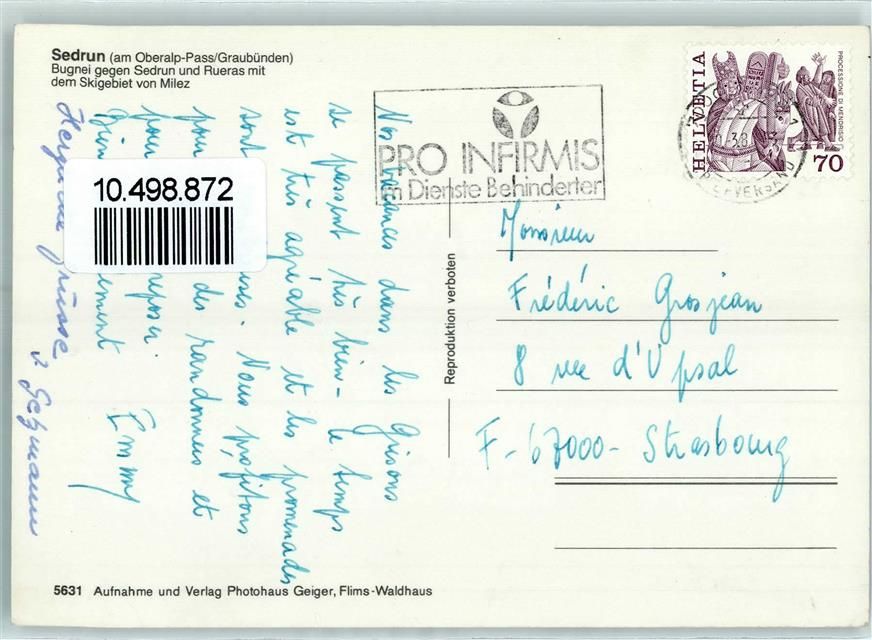 Sedrun (am Oberalp-Pass/Graubünden)
Bugnei gegen Sedrun und Rueras mit
dem Skigebiet von Milez
PRO INFIRMIS
im Dienste Behinderter
HELVETIA
PROCESSIONE DI MENDRISIO
70
10.498.872
Nos vacances dans les Grisons
se passent très bien - le temps
est très agréable et les promenades
sont Nous profitons
pour des randonnées et
pour reposer.
Emmy
Grüsse
Reproduktion verboten
Monsieur
Frédéric Grosjean
8 rue d'Upsal
F-67000- Strasbourg
5631 Aufnahme und Verlag Photohaus Geiger, Flims-Waldhaus